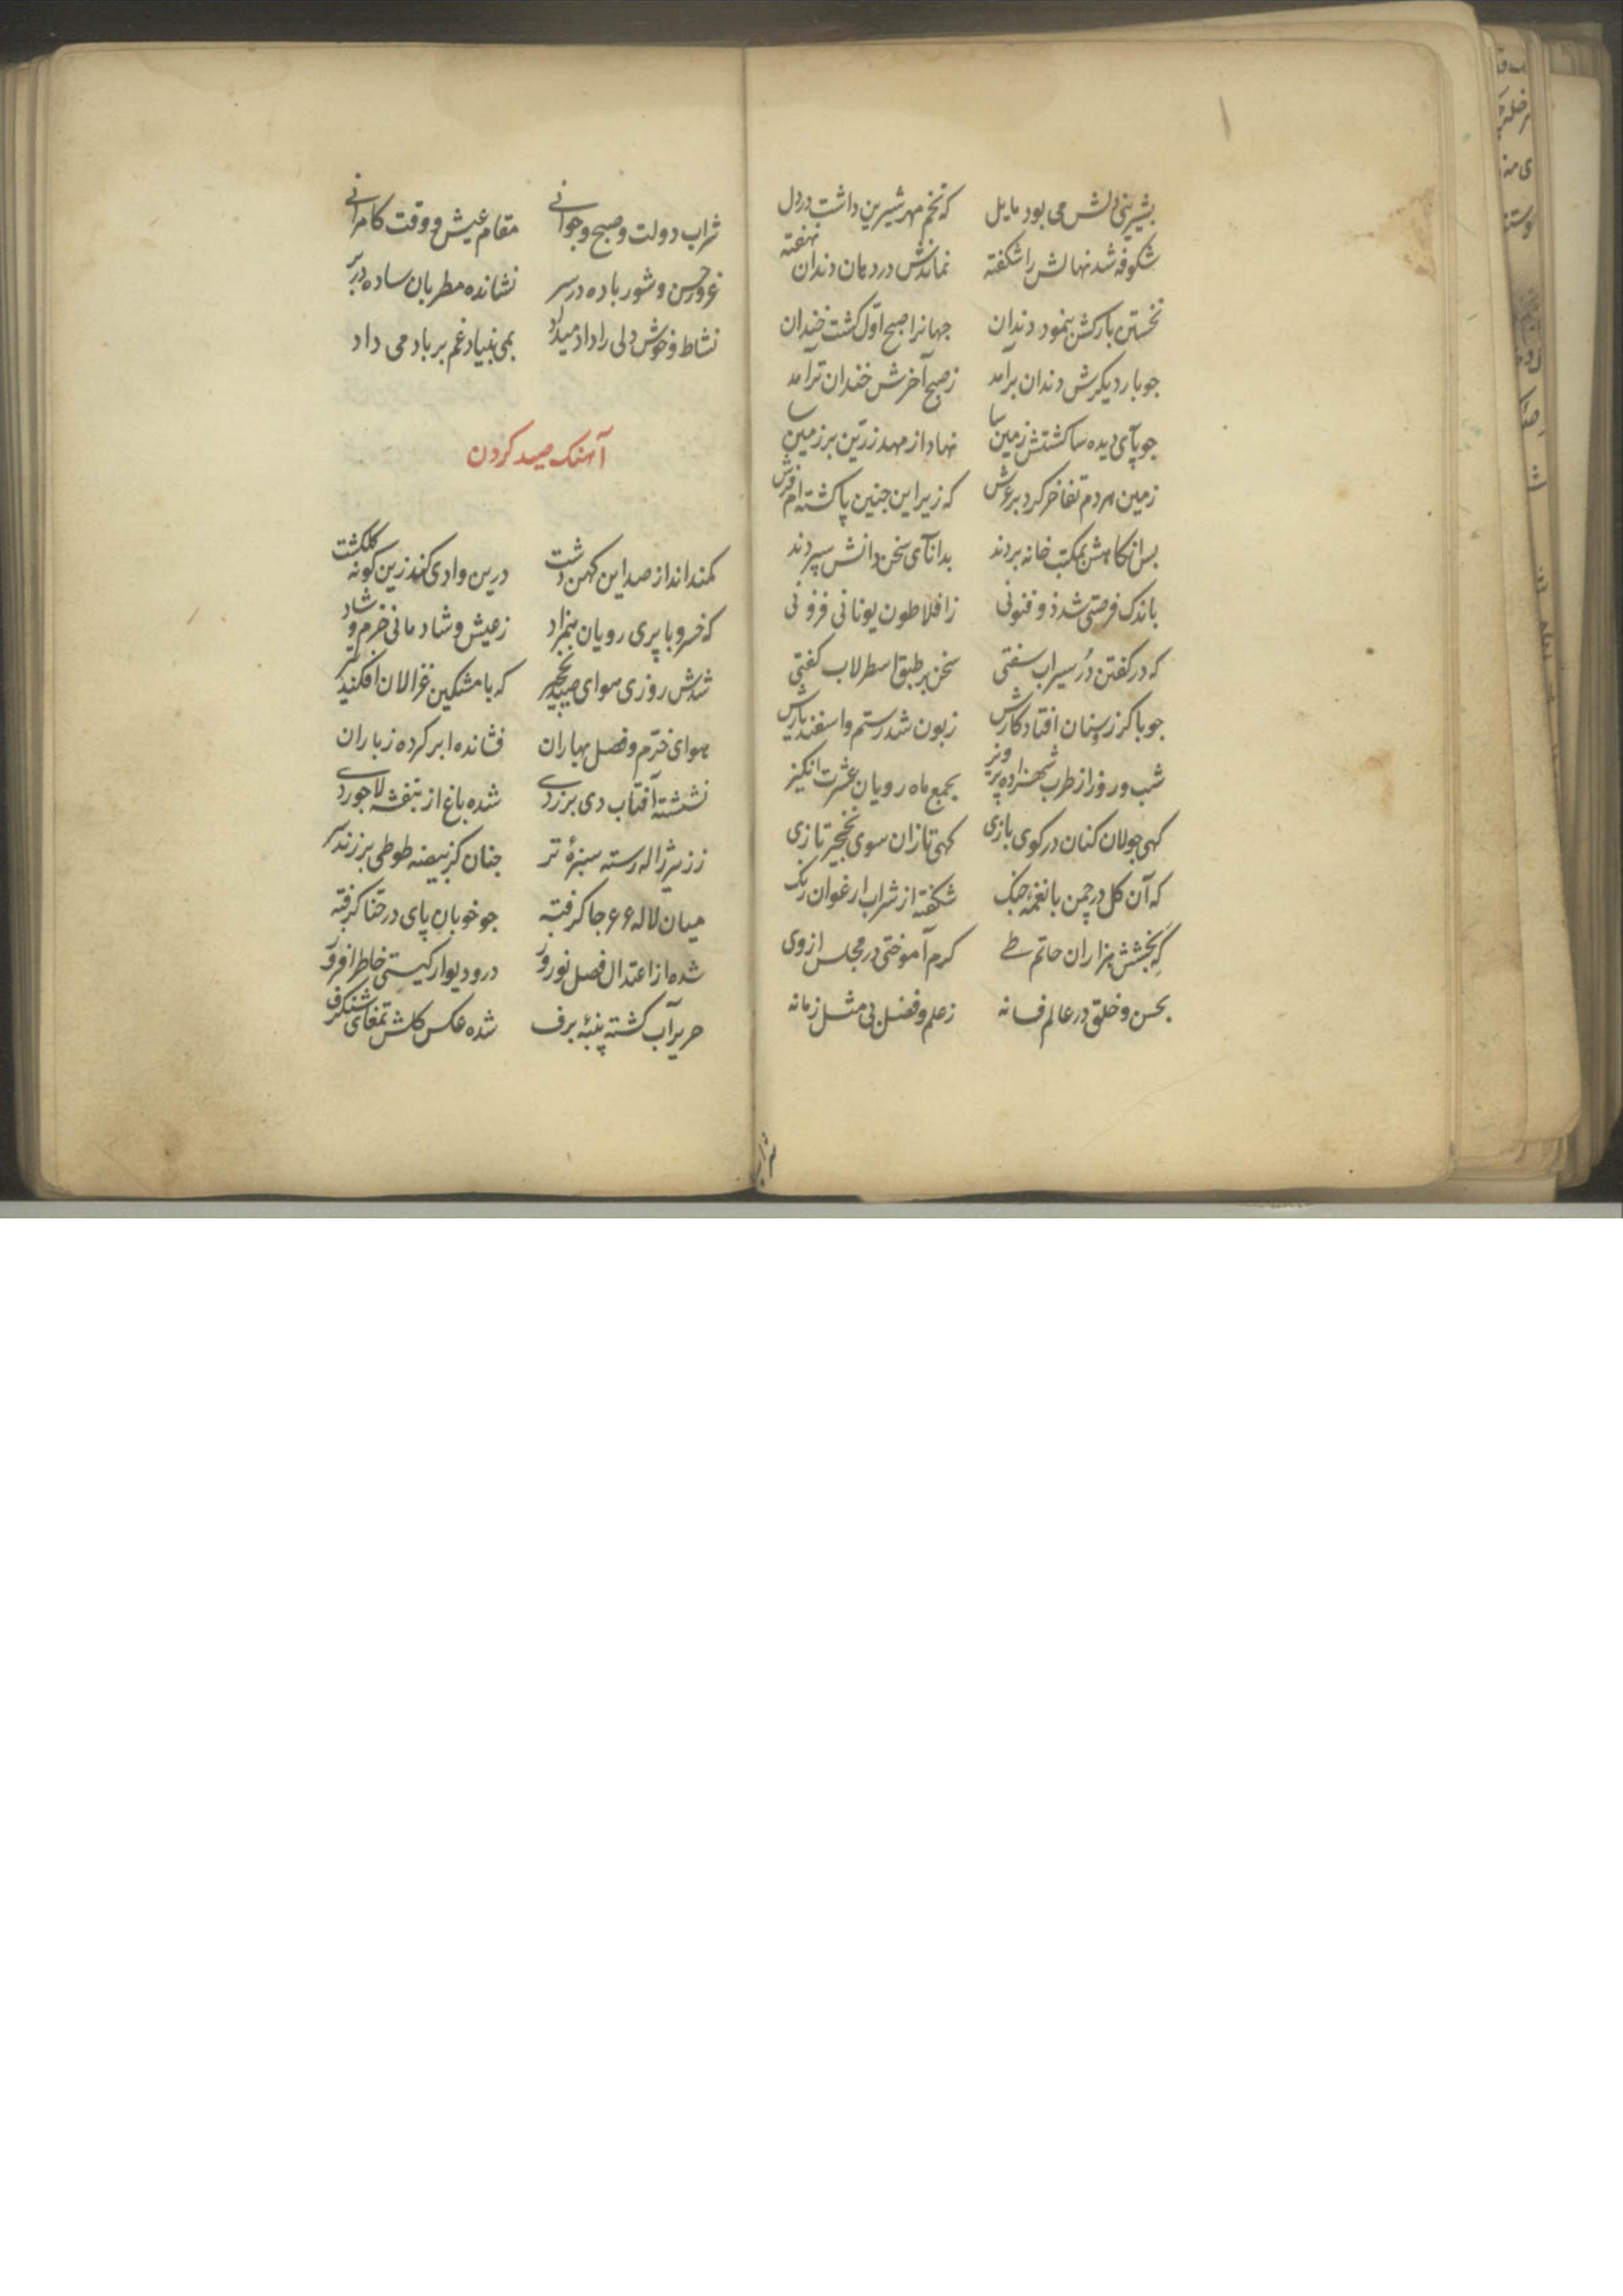 بشیرینی دلش می بود مایل که تخم مهر شیرین داشت در دل
شکوفه شد نهالش را شکفته نماندش در دهان دندان نهفته
نخستین بارکش بنمود دندان جهانرا صبح اول کشت خندان
جو بار دیکرش دندان برآمد ز صبح آخرش خندان تر آمد
جو پآی دیده سا کشتش زمین سا نهاد از مهد زرین بر زمین پا
زمین مردم تفاخر کرد بر عرش که زیر این جنین پا کشته ام فرش
بس انکاهش بمکتب خانه بردند بدانآی سخن دانش سپردند
باندک فرصتی شد ذو فنونی ز افلاطون یونانی فزونی
که در کفتن دُر سیراب سفتی سخن بر طبق اسطرلاب کفتی
جو با کرز و سنان افتاد کارش زبون شد رستم و اسفندیارش
شب و روز از طرب شهزاده پرویز بجمع ماه رویان عشرت انکیز
کهی جولان کنان در کوی بازی کهی تازان سوی نخجیر تازی
که آن کل در چمن با نغمه جنک شکفته از شراب ارغوان رنک
کَهِ بخشش هزاران حاتم طے کرم آموختی در مجلس از وی
بحسن و خلق در عالم فسانه ز علم و فضل بی مثل زمانه
شراب
شراب دولت و صبح و جوانے مقام عیش و وقت کامرانے
غرور حسن و شور باده در سر نشانده مطربان ساده در بر
نشاط و خوش دلی را داد میداد بمی بنیاد غم بر باد می داد
آهنک صید کردن
کمند انداز صید این کهن دشت درین وادی کند زین کونه کلکشت
که خسرو با پری رویان بنمزاد ز عیش و شادمانی خرم و شاد
شدش روزی هوای صید نخجیر که با مشکین غزالان افکند تیر
هوای خرّم و فصل بهاران فشانده ابر کرده ز باران
نشسته آفتاب دی بزردے شده باغ از بنفشه لاجوردے
ز زیر ژاله رسته سبزهٔ تر جنان کز بیضه طوطی بر زند سر
میان لاله ءء جا کرفته جو خوبان پای در حنا کرفته
شده از اعتدال فصل نوروز در و دیوار کیتی خاطر افروز
حریر آب کشته پنبهٔ برف شده عکس کلش تمغای شنکرف